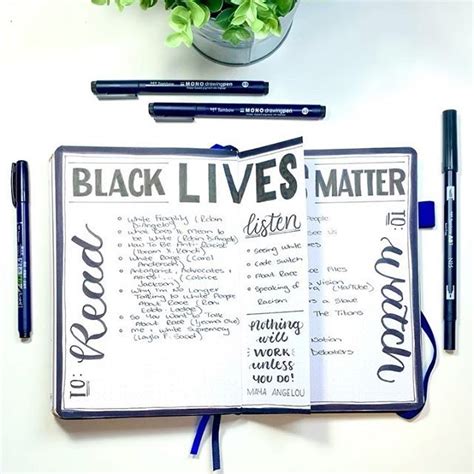 Tombow MONO drawing pen
Tombow MONO drawing pen
BLACK LIVES MATTER
TO: Read
White Fragility (Robin DiAngelo)
What Does It Mean to be White (Robin DiAngelo)
How To Be Anti Racist (Ibram X. Kendi)
White Rage (Carol Anderson)
Antagonist, Advocates + Allies (Catrice Jackson)
Why I'm No Longer Talking to White People About Race (Reni Eddo-Lodge)
So You Want to Talk About Race (Ijeoma Oluo)
Me + White Supremacy (Layla F. Saad)
listen
Seeing White
Code Switch
About Race
Speaking of Racism
nothing
will
WORK
unless
YOU DO!
MAYA ANGELOU
TO: watch
Files
Vision
(YouTube)
a Slave
The Titans
Nation
Debaters